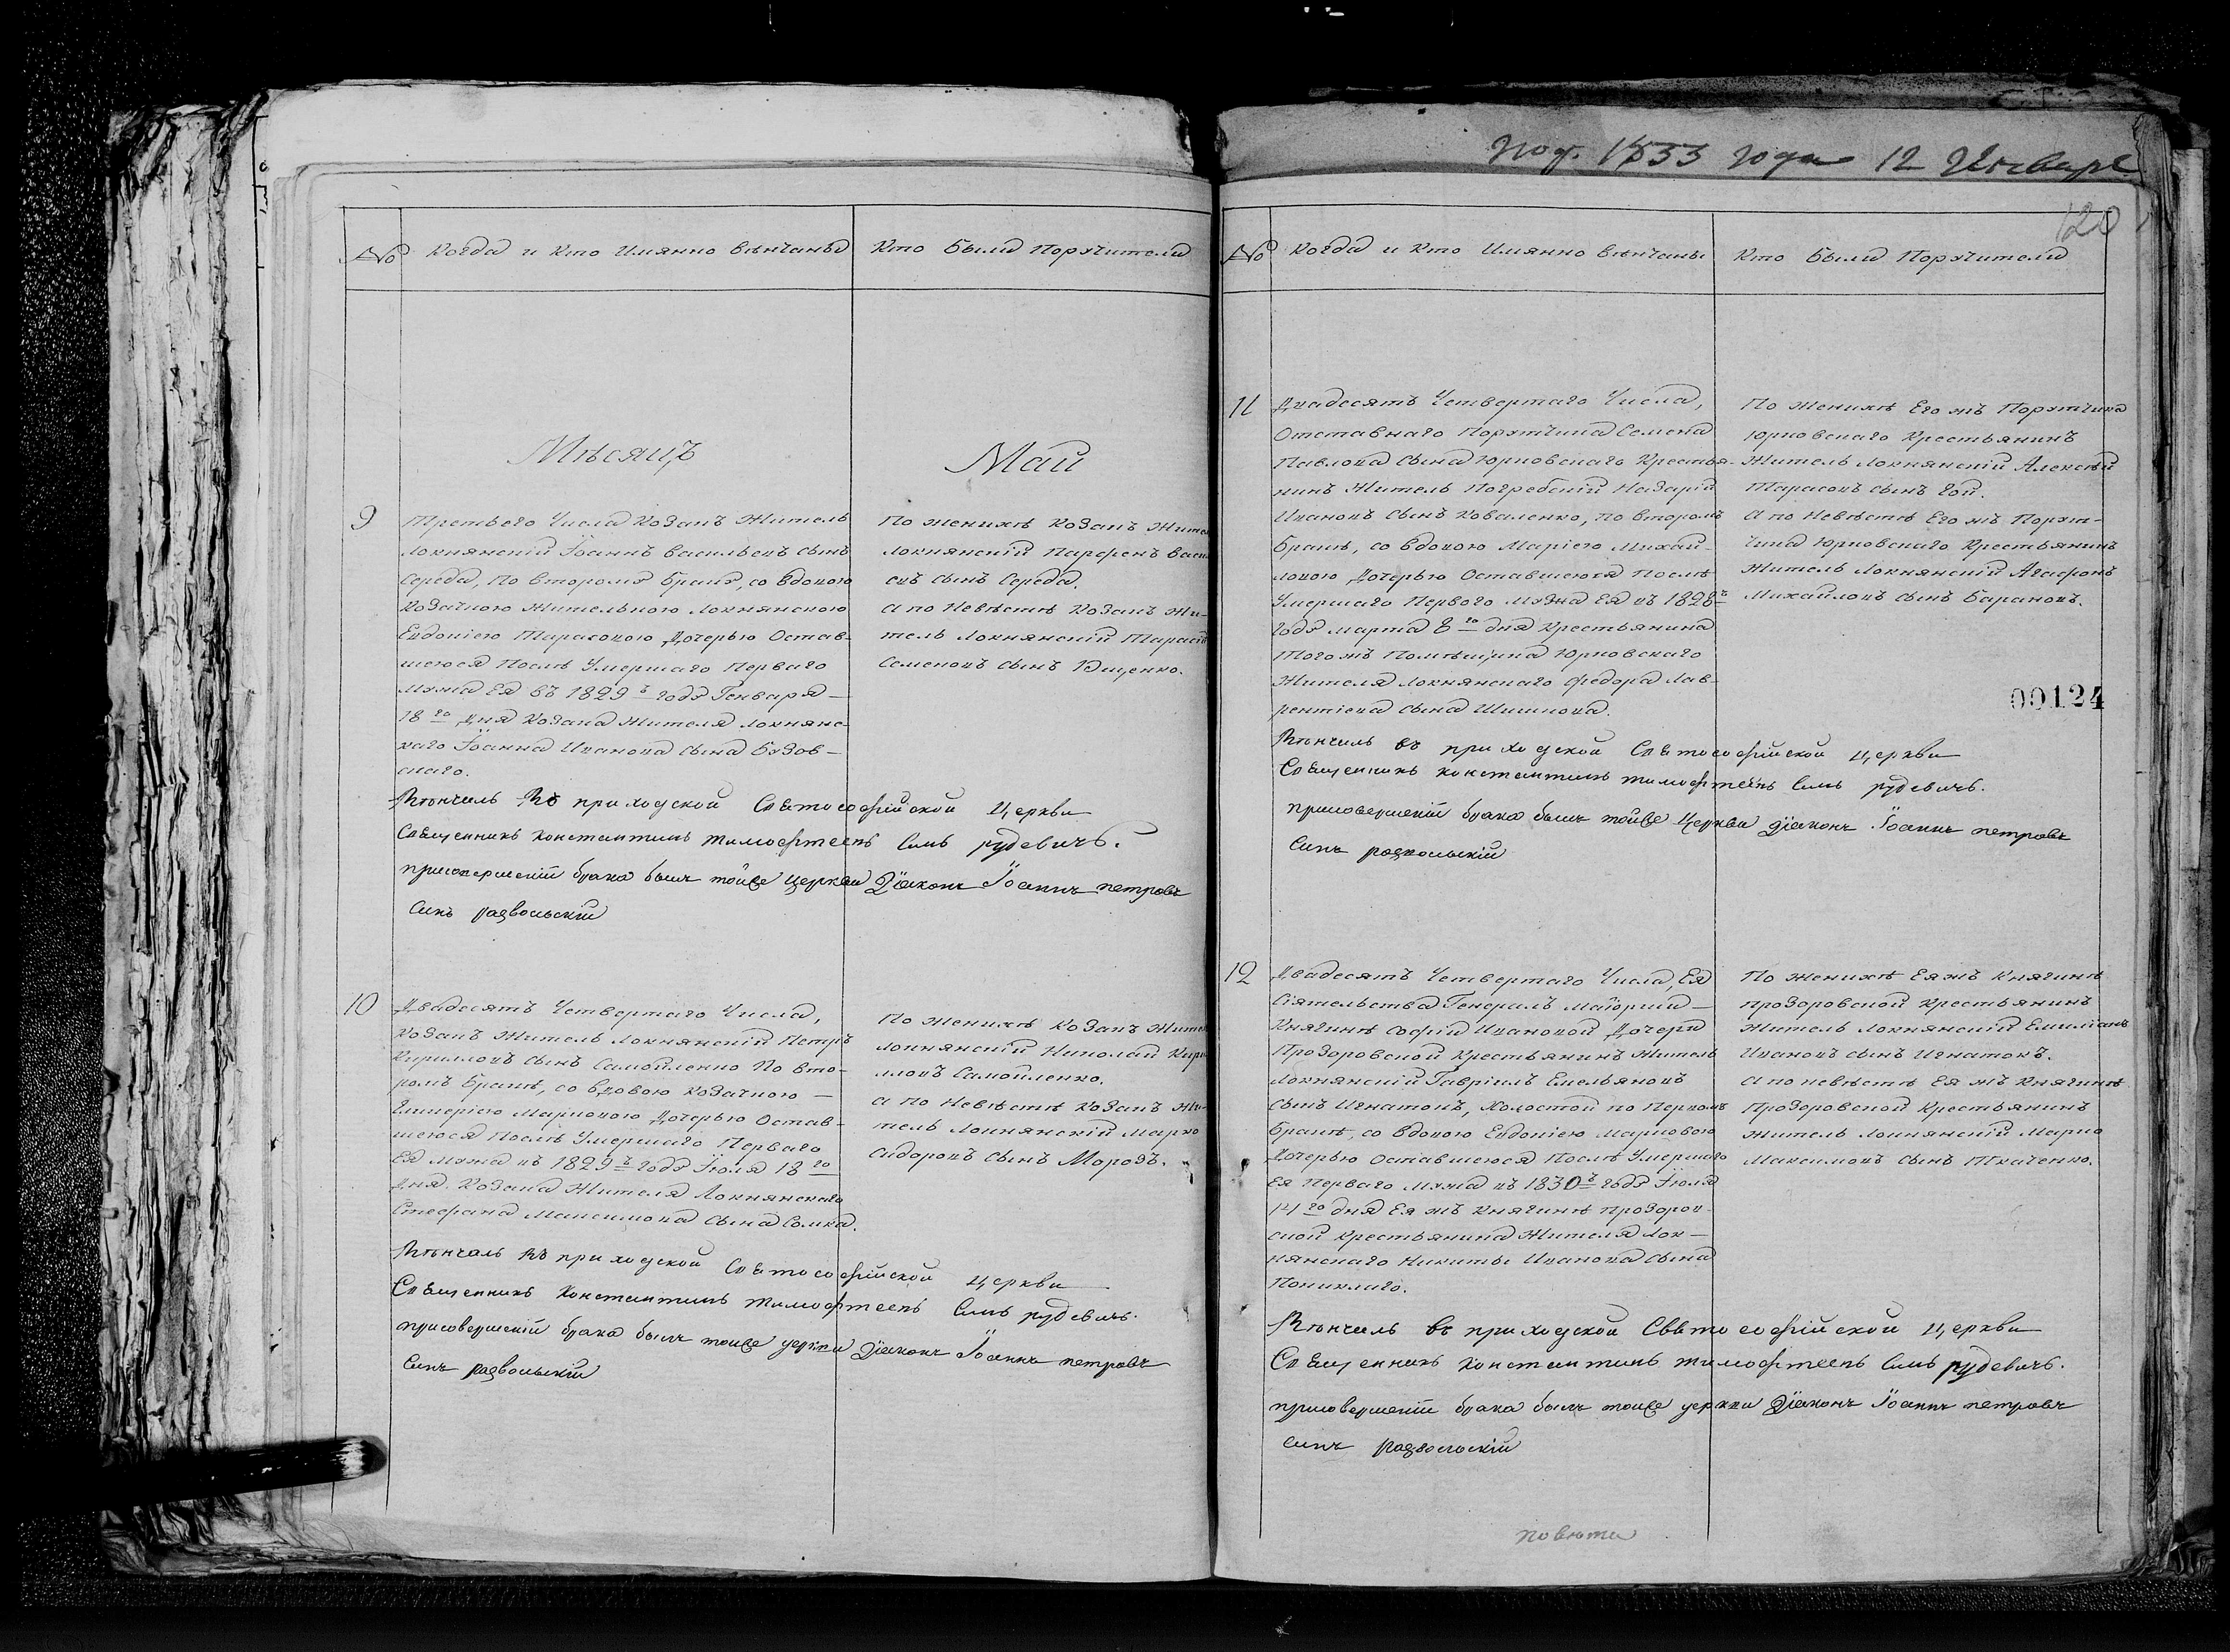 №
Когда и Кто Имянно венчаны
Кто были Поручители
Мѣсяцъ
Май
9
Третьего Числа Козакъ Житель
Локнянскій Іоаннъ Васильевъ сынъ
Середа, по второмъ бракѣ, со вдовою
козачкою жителькою Локнянскою
Евдокіею Тарасовою Дочерью Остав-
шеюся Послѣ Умершаго Перваго
Мужа Ея въ 1829ъ годѣ Генваря
18го Дня Козака Жителя Локнянс-
каго Іоанна Иванова сына Бузов-
скаго.
По женихѣ Козакъ Жите
Локнянскій Парфенъ Васи
евъ сынъ Середа.
А по Невѣстѣ Козакъ Жи-
тель Локнянскій Тарасъ
Семеновъ сынъ Ющенко.
Вѣнчалъ Въ приходской Святософійской Церкви
Священникъ Константинъ Тимофѣевъ Синъ рудевичъ.
присовершеніи брака былъ тойже Церкви Діаконъ Іоаннъ петровъ
Синъ развольскій
10
Двадесятъ Четвертаго Числа,
Козакъ Житель Локнянскій Петръ
Кирилловъ Сынъ Самойленко По вто-
ромъ бракѣ, со вдовою козачкою
Гликеріею Марковою Дочерью Остав-
шеюся Послѣ Умершаго Перваго
Ея Мужа въ 1829ъ годѣ Іюля 18го
Дня. Козака Жителя Локнянскаго
Стефана Максимова Сына Сомка.
По женихѣ Козакъ Жите
Локнянскій Николай Кири
лловъ Самойленко.
А по Невѣстѣ Козакъ Жи-
тель Локнянскій Марко
Сидоровъ Сынъ Морозъ.
Вѣнчалъ Въ приходской Святософійской церкви
Священникъ Константинъ Тимофѣевъ Синъ рудевичъ.
присовершеніи брака былъ тойже церкви Діаконъ Іоаннъ петровъ
Синъ развольскій
1833 года 12 Генваря
120
№
Когда и Кто Имянно венчаны
Кто были Поручители
11
Двадесятъ Четвертаго Числа,
Отставнаго Порутчика Семена
Павлова Сына Юрковскаго Крестья-
нинъ Житель Погребскій Назарій
Ивановъ Сынъ Коваленко, по второмъ
бракѣ, со вдовою Маріею Михай-
ловою Дочерью Оставшеюся Послѣ
Умершаго Перваго Мужа Ея въ 1828ъ
Годѣ марта 8го дня Крестьянина
Того жъ Помѣщика Юрковскаго
Жителя Локнянскаго Федора Лав-
рентіева сына Шишкова.
По женихѣ Его жъ Порутчика
Юрковскаго Крестьянинъ
Житель Локнянскій Алексѣй
Тарасовъ сынъ Гой.
А по Невѣстѣ Его жъ Порут-
чика Юрковскаго Крестьянинъ
Житель Локнянскій Агафонъ
Михайловъ сынъ Барановъ.
00124
Вѣнчалъ въ приходской Святософійской церкви
Священникъ константинъ тимофѣевъ Синъ рудевичъ.
присовершеніи брака былъ тойже Церкви діаконъ Іоаннъ петровъ
Синъ развольскій
12
Двадесятъ Четвертаго Числа, Ея
Сіятельства Генералъ Маіорши
Княгинѣ Софіи Ивановой Дочери
Прозоровской Крестьянинъ Житель
Локнянскій Гавріилъ Емельяновъ
Сынъ Игнатокъ, Холостой по Первомъ
бракѣ, со вдовою Евдокіею Марковою
Дочерью Оставшеюся Послѣ Умершаго
Ея Перваго Мужа въ 1830ъ годѣ Іюля
14го дня Ея жъ Княгинѣ Прозоров-
ской Крестьянина Жителя Лок-
нянскаго Никиты Иванова Сына
Пониклаго.
По женихѣ Ея жъ Княгинѣ
Прозоровской Крестьянинъ
Житель Локнянскій Емиліанъ
Ивановъ Сынъ Игнатокъ.
А по невѣстѣ Ея жъ Княгинѣ
Прозоровской Крестьянинъ
Житель Локнянскій Марко
Максимовъ Сынъ Ткаченко.
Вѣнчалъ въ приходской Святософійской церкви
Священникъ константинъ тимофѣевъ Синъ рудевичъ.
присовершеніи брака былъ тойже церкви Діаконъ Іоаннъ петровъ
Синъ развольскій